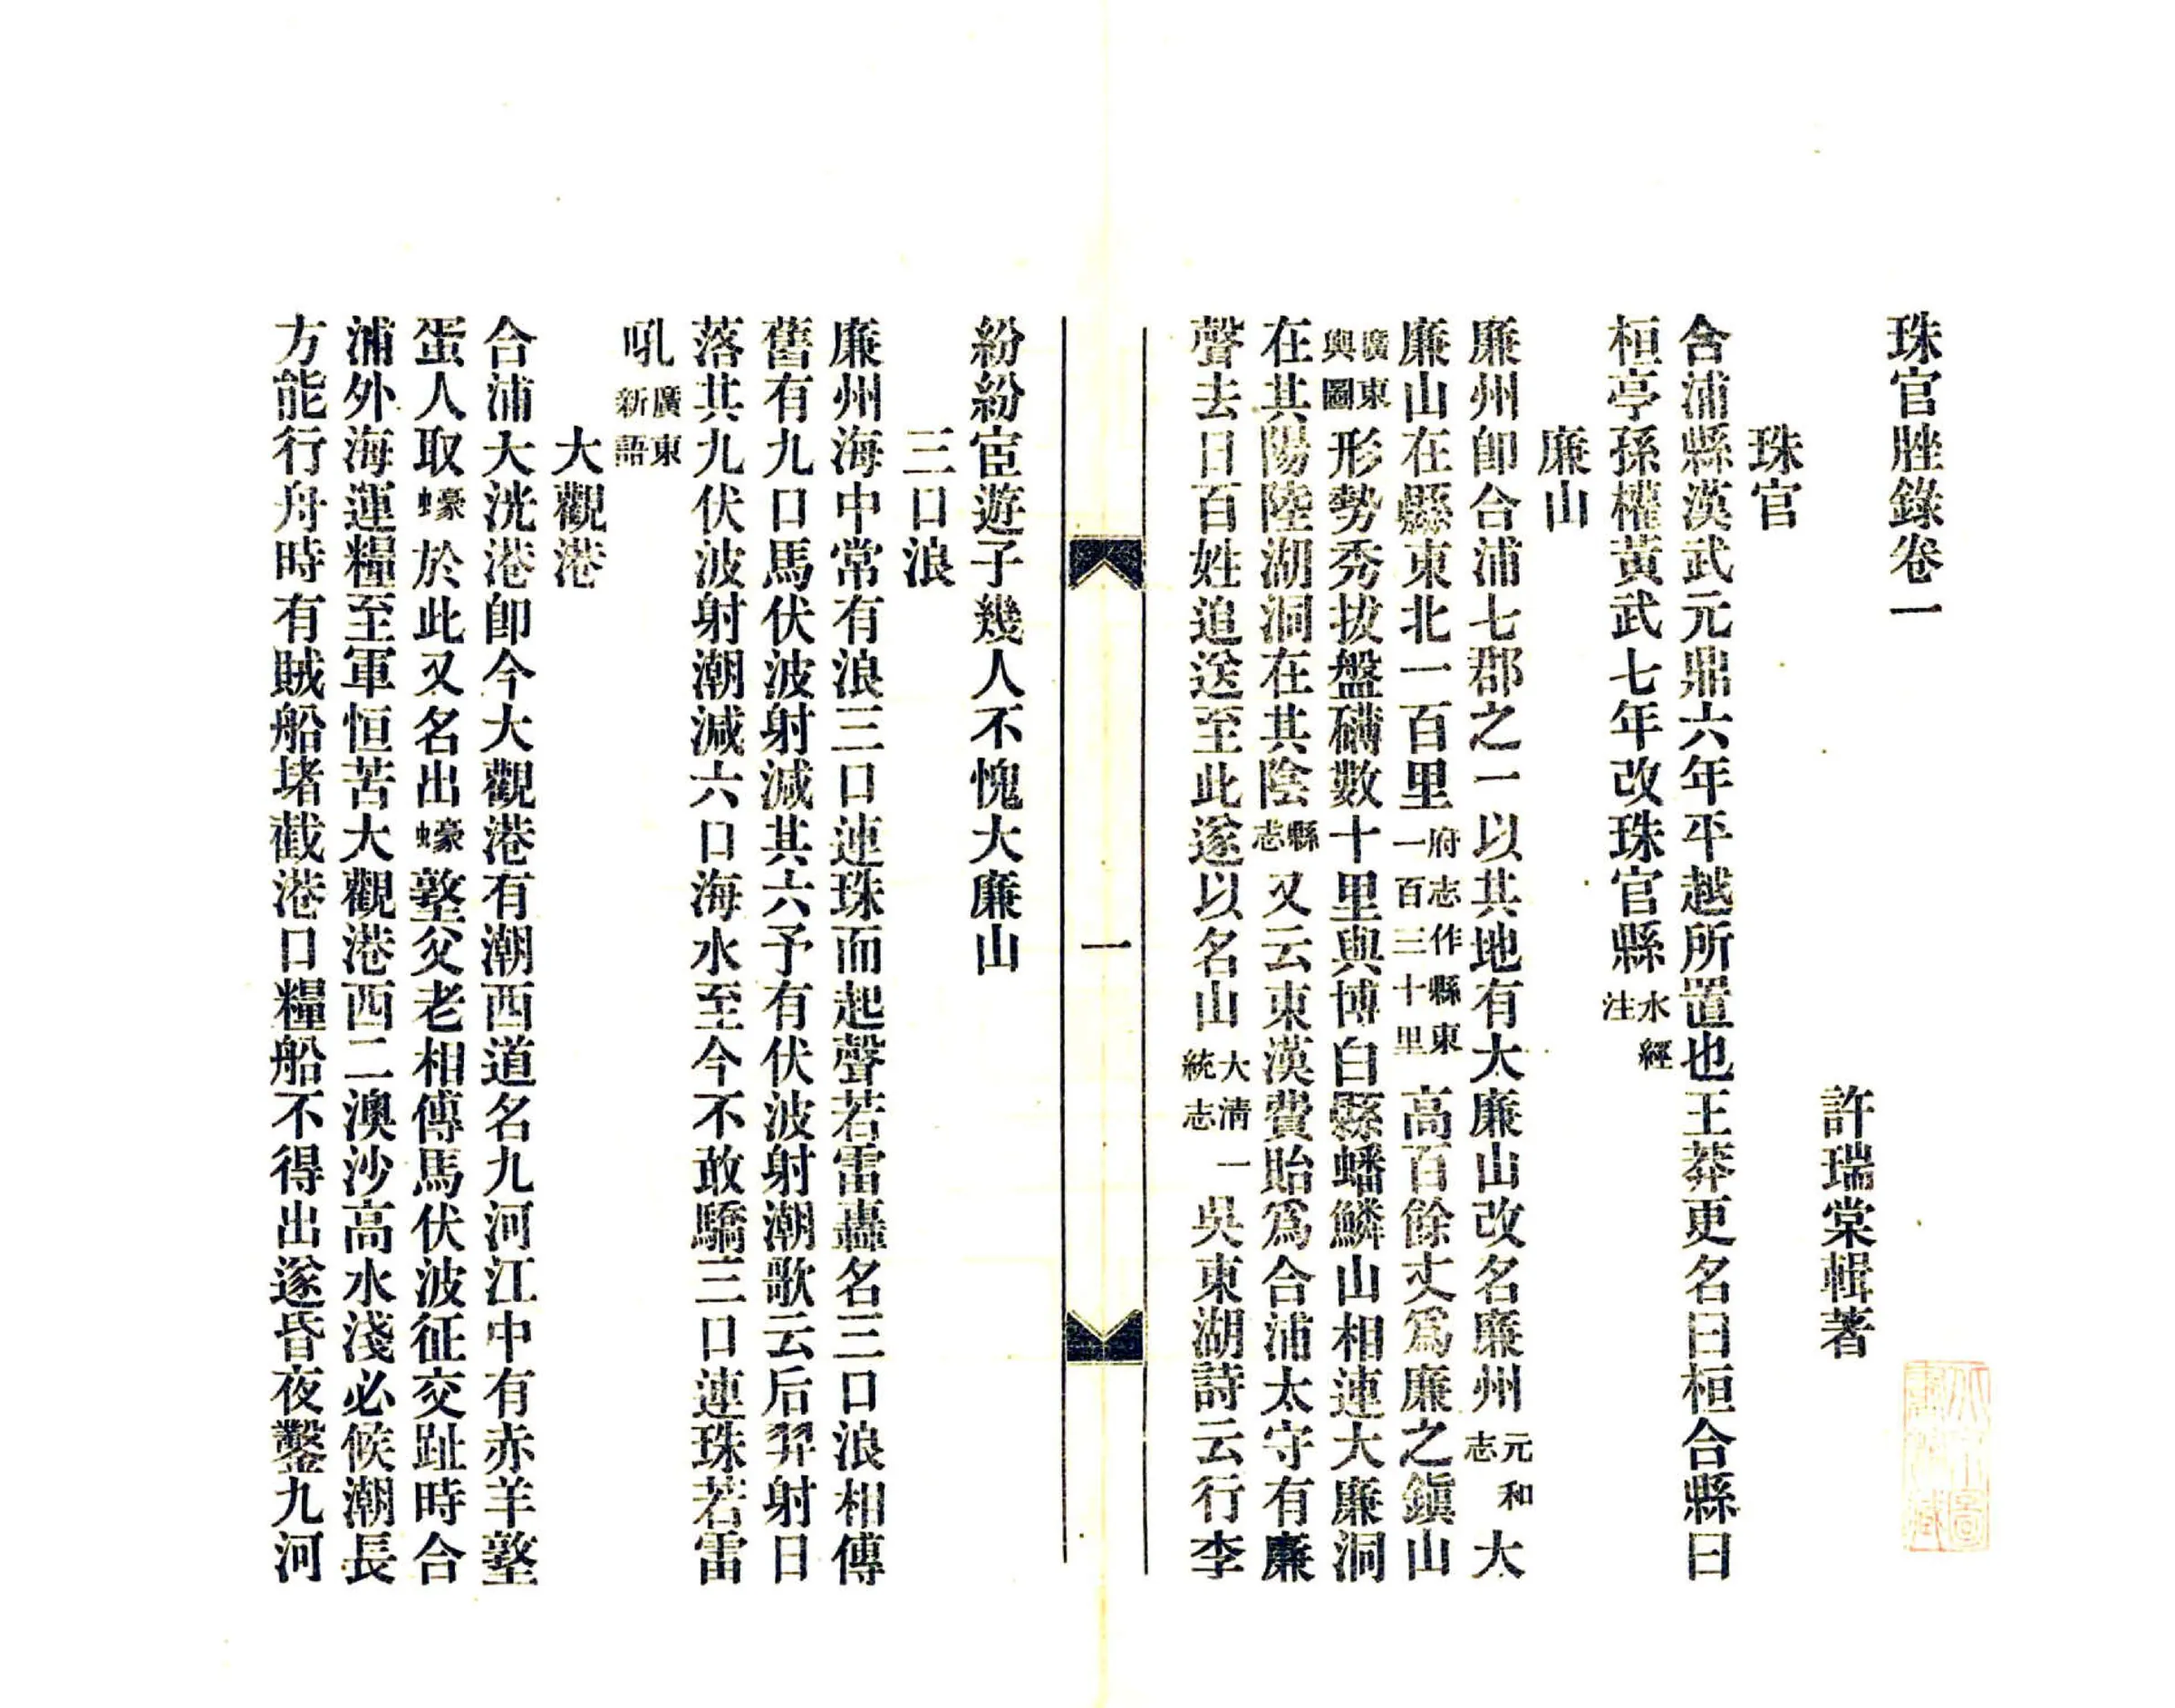 珠官脞錄卷一
許瑞棠輯著
珠官
合浦縣漢武元鼎六年平越所置也王莽更名曰桓合縣曰
桓亭孫權黃武七年改珠官縣水經注
廉山
廉州卽合浦七郡之一以其地有大廉山改名廉州元和志大
廉山在縣東北一百里府志作縣東一百三十里高百餘丈爲廉之鎭山
廣東輿圖形勢秀拔盤礴數十里與博白縣蟠鱗山相連大廉洞
在其陽陸湖洞在其陰縣志又云東漢費貽爲合浦太守有廉
聲去日百姓追送至此遂以名山大淸一統志吳東湖詩云行李
一
紛紛宦遊子幾人不愧大廉山
三口浪
廉州海中常有浪三口連珠而起聲若雷轟名三口浪相傳
舊有九口馬伏波射減其六予有伏波射潮歌云后羿射日
落其九伏波射潮減六口海水至今不敢驕三口連珠若雷
吼廣東新語
大觀港
合浦大洸港卽今大觀港有潮西道名九河江中有赤羊墪
蛋人取蠔於此又名出蠔墪父老相傳馬伏波征交趾時合
浦外海運糧至軍恒苦大觀港西二澳沙高水淺必候潮長
方能行舟時有賊船堵截港口糧船不得出遂昏夜鑿九河